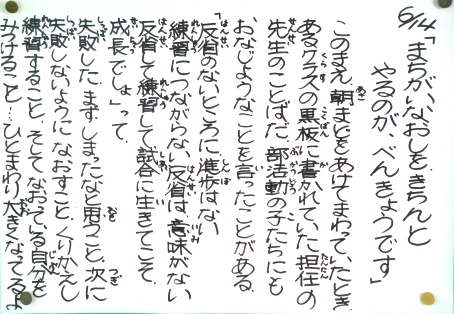 6/14「まちがいなおしを、きちんと
やるのが、べんきょうです」
このまえ、朝まどをあけてまわっていたとき
あるクラスの黒板に書かれていた担任の
先生のことばだ。部活動の子たちにも
おなじようなことを言ったことがある。
「反省のないところに進歩はない
練習につながらない反省は意味がない
反省して練習して試合に生きてこそ、
成長でしょ」って。
失敗した。まず、しまったなと思うこと、次に
失敗しないようになおすこと、くりかえし
練習すること、そしてなおっている自分を
みつけること…ひとまわり大きくなってるよ